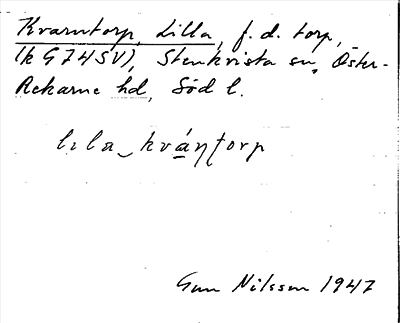 Kvarntorp, Lilla, f.d. torp,
(k G74SV), Stenkvista sn, Öster-
Rekarne hd, Söd l.
lila_kvántorp
Gun Nilsson 1947